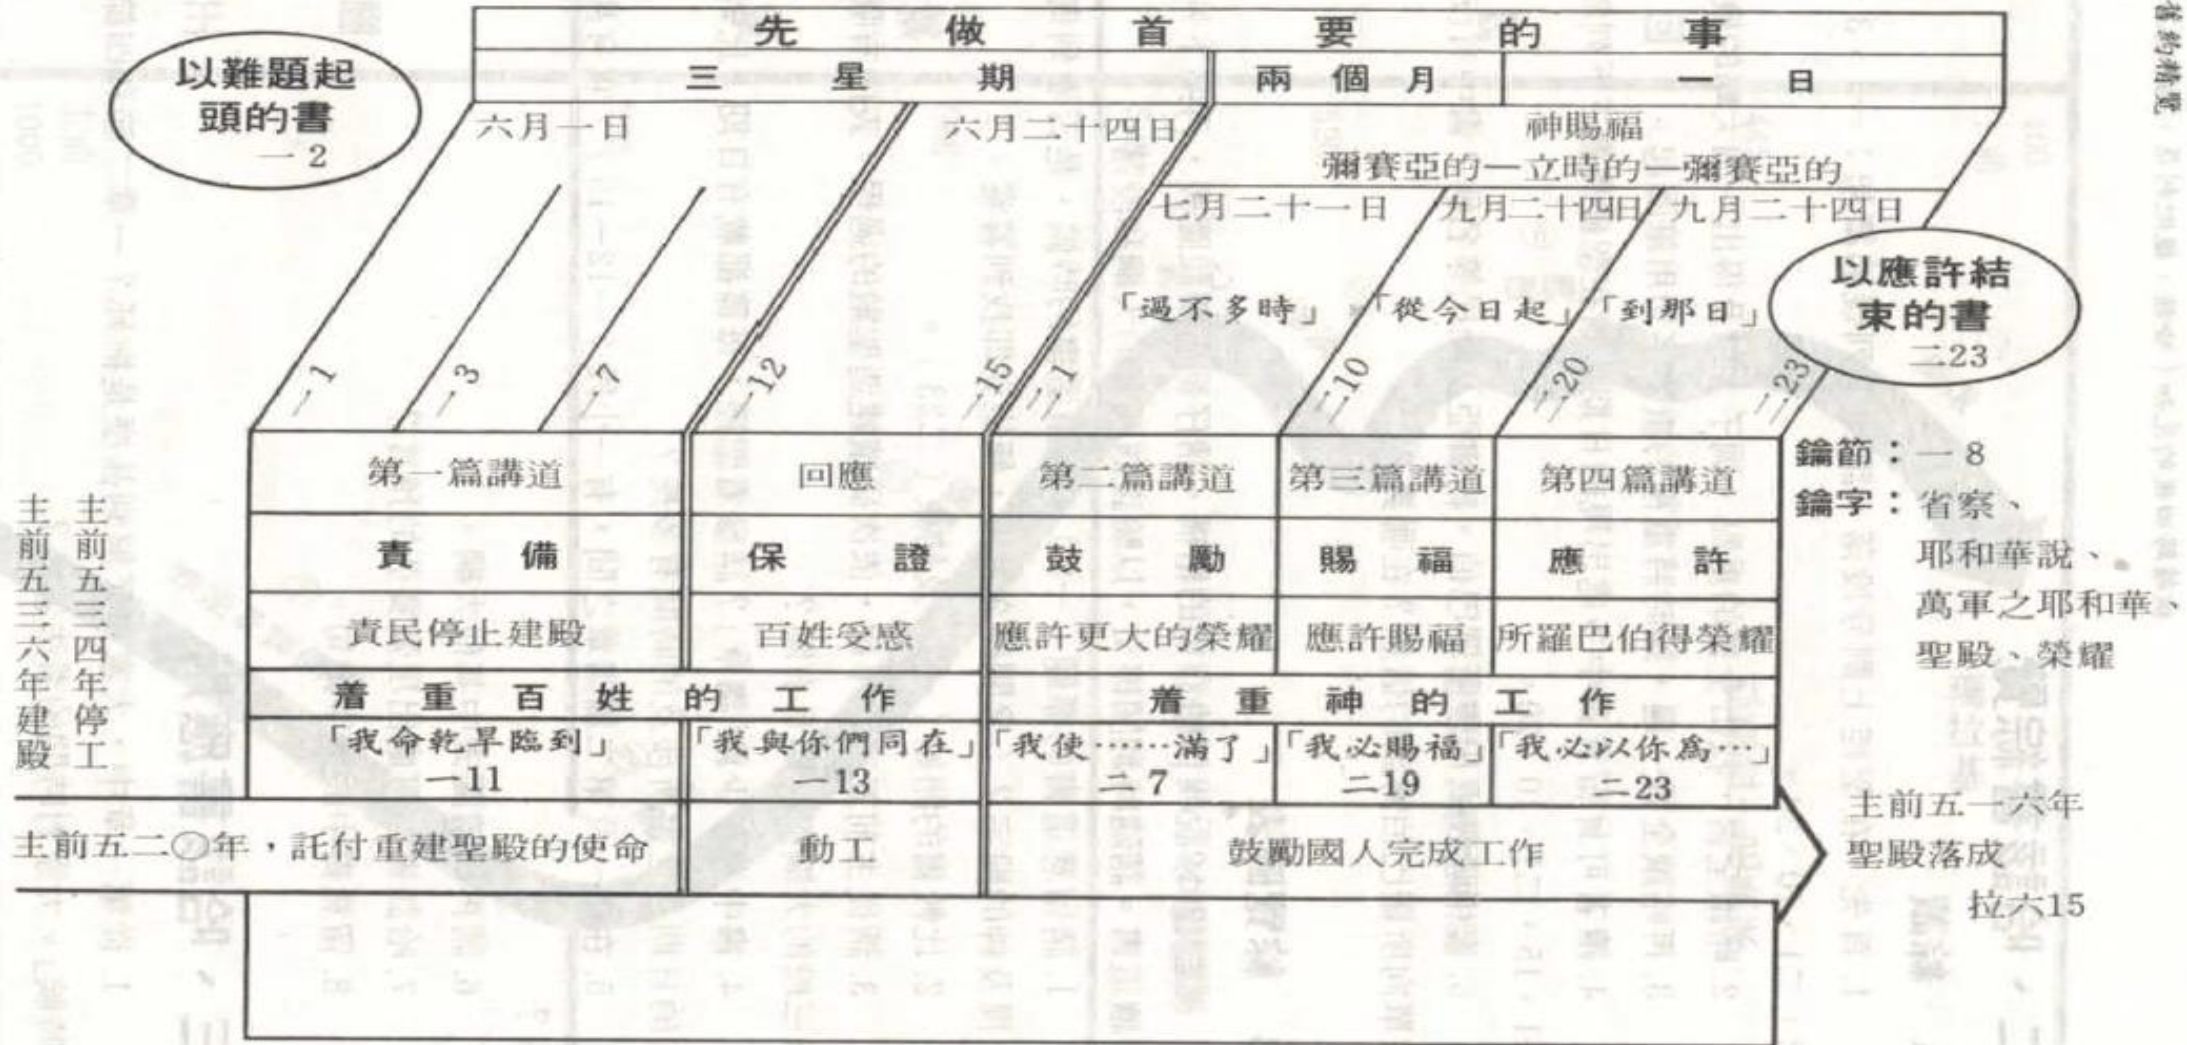 舊約精覽
先做首要的事
三星期
兩個月
一日
以難題起
頭的書
一2
六月一日
六月二十四日
神賜福
彌賽亞的—立時的—彌賽亞的
七月二十一日
九月二十四日
九月二十四日
「過不多時」
「從今日起」
「到那日」
以應許結
束的書
二23
一1
一3
一7
一12
一15
二1
二10
二20
二23
第一篇講道
回應
第二篇講道
第三篇講道
第四篇講道
責備
保證
鼓勵
賜福
應許
責民停止建殿
百姓受感
應許更大的榮耀
應許賜福
所羅巴伯得榮耀
着重百姓的工作
着重神的工作
「我命乾旱臨到」
一11
「我與你們同在」
一13
「我使……滿了」
二7
「我必賜福」
二19
「我必以你為…」
二23
鑰節：一8
鑰字：省察、
耶和華說、
萬軍之耶和華、
聖殿、榮耀
主前五三四年停工
主前五三六年建殿
主前五二〇年，託付重建聖殿的使命
動工
鼓勵國人完成工作
主前五一六年
聖殿落成
拉六15